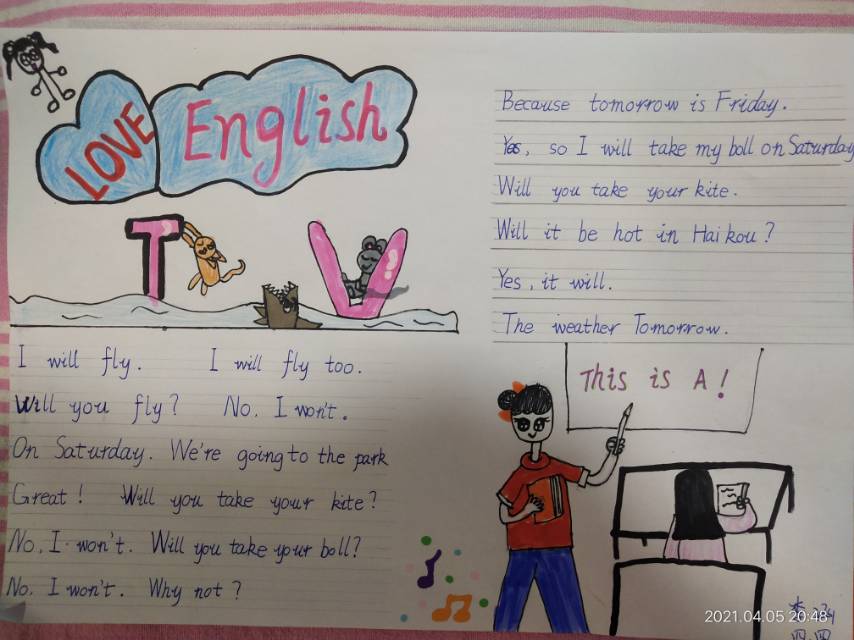 LOVE English
T V
I will fly. I will fly too.
Will you fly? No, I won't.
On Saturday. We're going to the park
Great! Will you take your kite?
No, I won't. Will you take your boll?
No. I won't. Why not?
Because tomorrow is Friday.
Yes, so I will take my boll on Saturday
Will you take your kite.
Will it be hot in Haikou?
Yes, it will.
The weather Tomorrow.
This is A!
2021.04.05 20:48